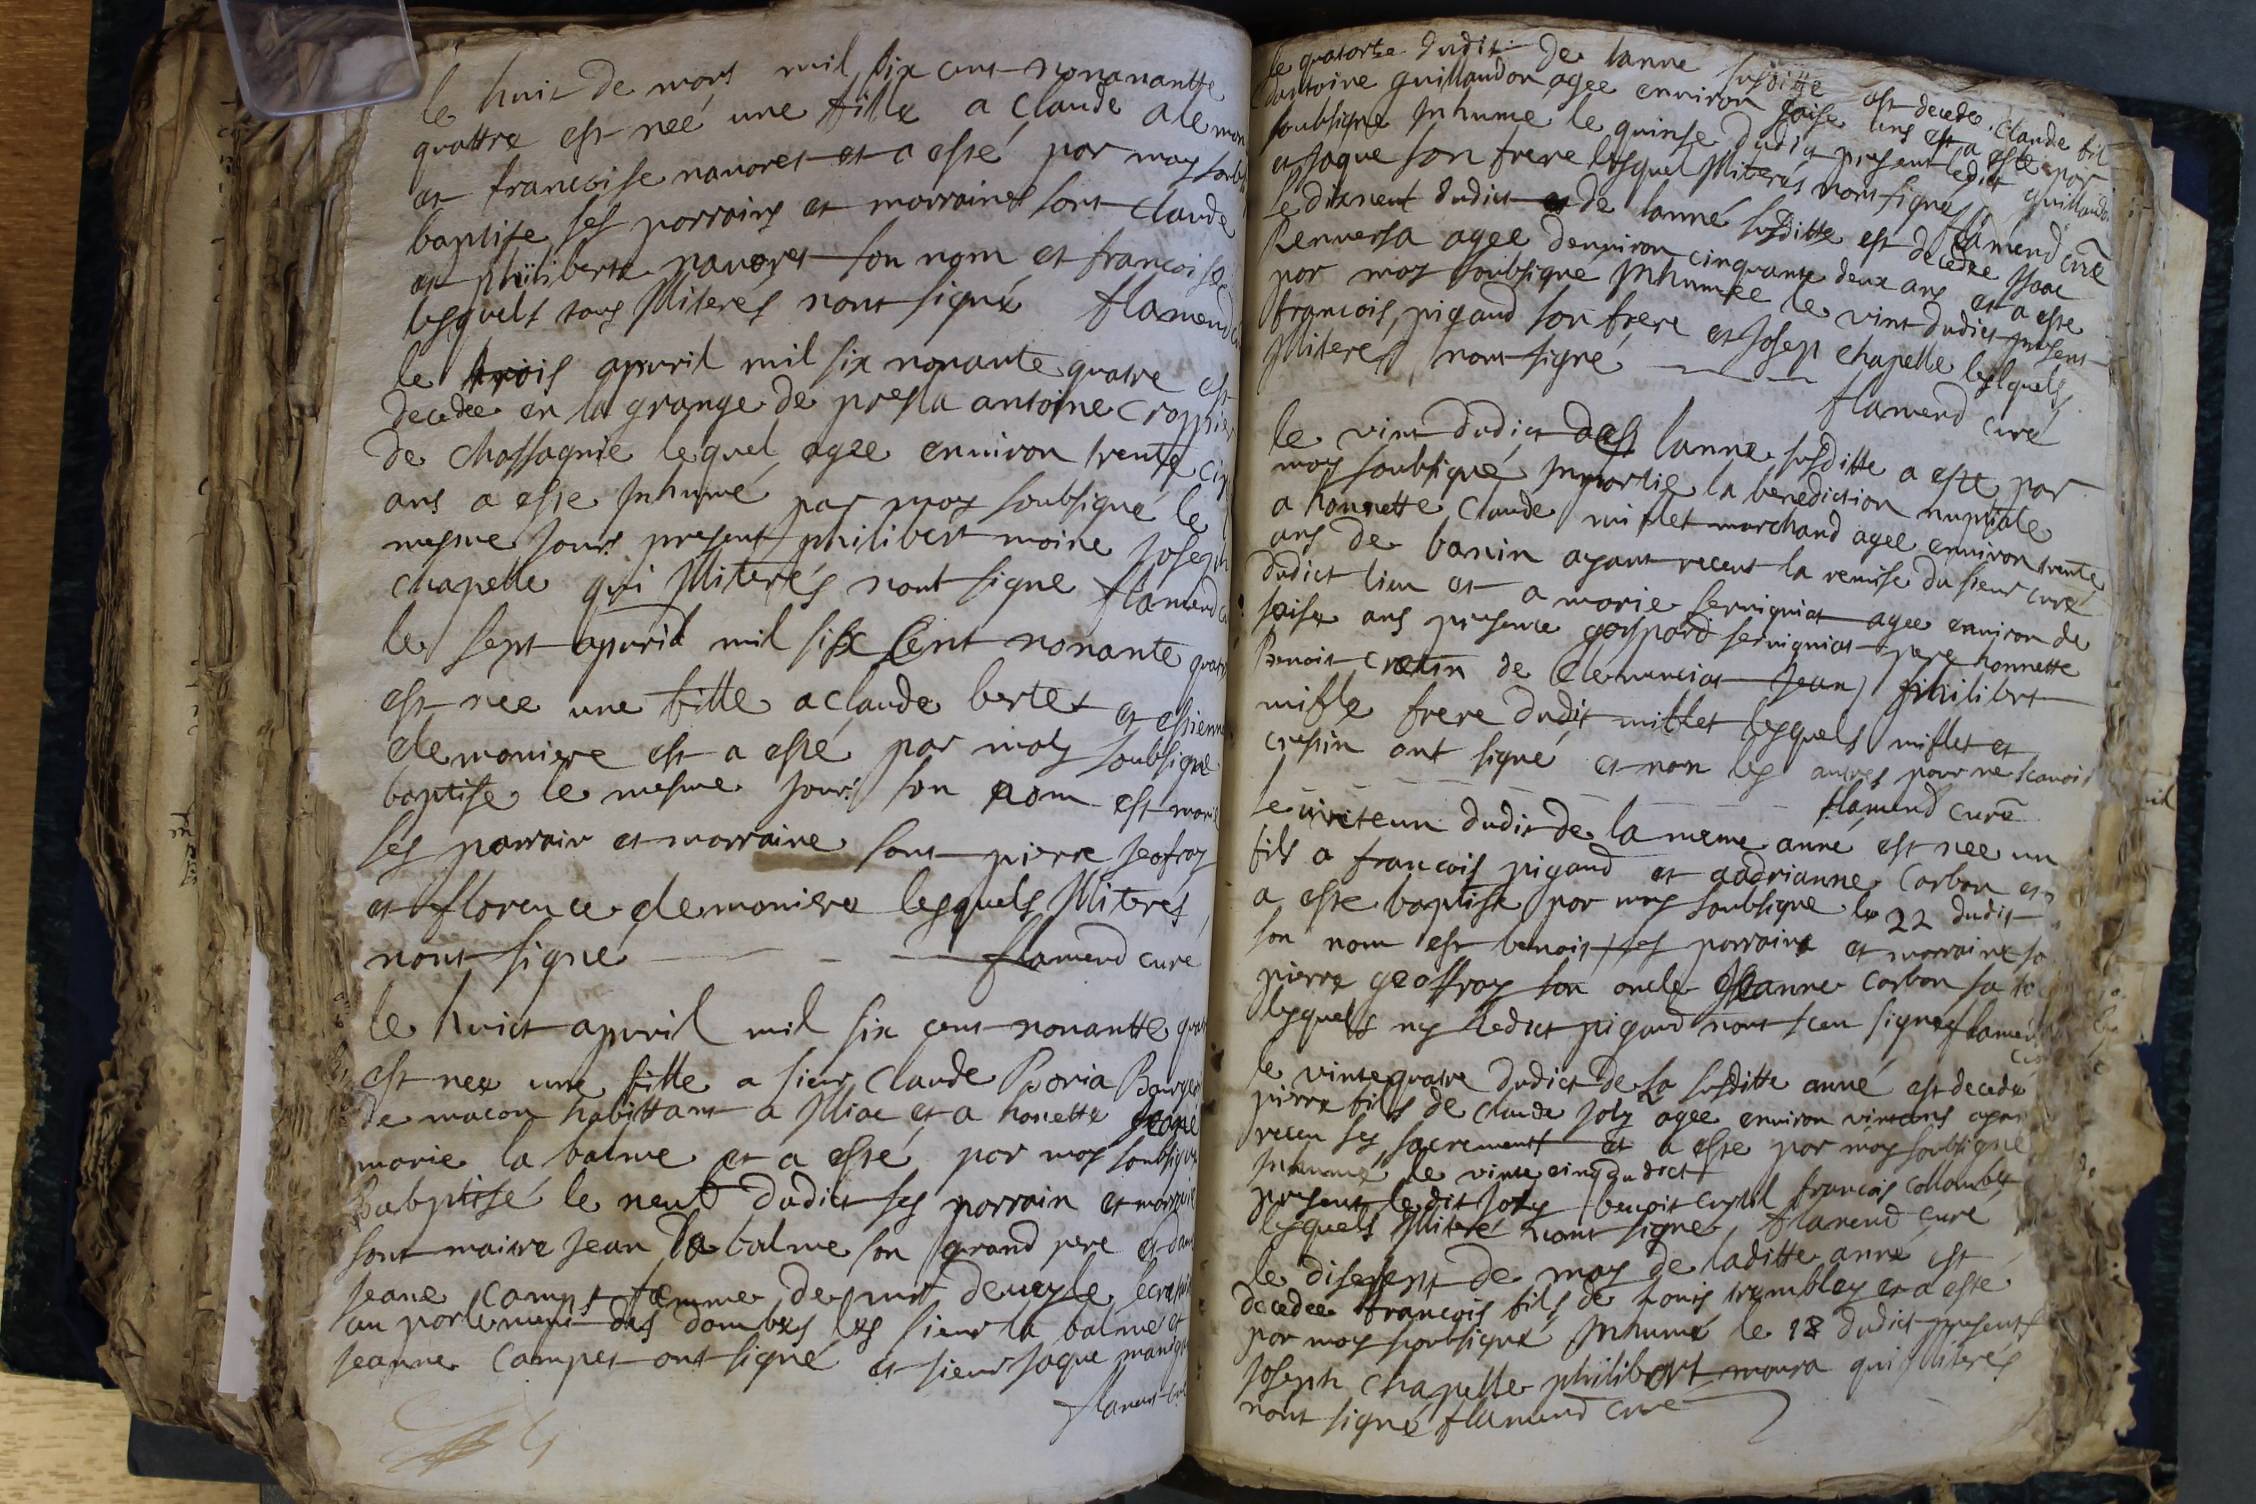 le huit de mars mil six cens nonanantte
quattre est neé une fille a Claude alemon
et francoise nauoret et a esté par moy soub
baptise ses parrains et marraines sont claude
et philiberte nauoret son nom et francoise
lesquels tous Illiterés nont signé flamend
le trois apuril mil six nonante quatre est
decedee en la grange de presla antoine croppier
de chassagnie lequel agee enuiron trente cin
ans a este Inhumé par moy soubsigné le
mesme Jour present philibert moine Joseph
chapelle qui Illiterés nont signe flamend
le sept apuril mil six Cent nonante quatr
est nee une fille a claude bertet et estienn
demoniere est a esté par moy soubsigne
baptise le mesme Jour son nom est marie
ses parrain et marraine sont pierre Jeofroy
et florence demoniere lesquels Illiterés
nont signe flamend cure
le huict apuril mil six cens nonantte qua
est nee une fille a sieur Claude Poria Bourge
de macon habittant a Illiac et a honette Jeane
marie la balme et a esté par moy soubsigne
Babptisé le neuf dudict ses parrain et marraine
sont maitre Jean la balme son grand pere et dam
Jeane Campet femme de mr deueyle
au parlement des dombes les sieur la balme et
Jeanne Campet ont signé et sieur Jaque
flamend
le quatorze dudit de lanne susditte est decede Claude fil
dantoine guillaudon agee enuiron saise ans et a este par
soubsigne Inhume le quinse dudict present ledict guillaudon
et Jaque son frere lesquel Illiterés nont signes flamend cure
le dixneuf dudict de lanné susditte est decedee Isaac
Reuersa agee denuiron cinquante deux ans et a este
par moy soubsigné Inhumee le vint dudict present
francois pigaud son frere et Josep chapelle lesquels
Illiterés nont signé
flamend curé
le vint dudict des lanne susditte a este par
moy soubsigné Inpartie la benediction nuptiale
a honnette Claude miflet marchand agee enuiron trente
ans de banin ayant receut la remise du sieur curé
dudict lieu et a marie seruignat agee enuiron de
saise ans presence gaspard seruignat pere honnette
Benoit cretin de Clemenciat Jean philibert
mifle frere dudit miflet lesquels miflet et
cretin ont signé et non les autres pour ne scauoir
flamend curé
le vinteun dudit de la meme anné est nee un
fils a francois pigaud et aadrianne Carbon et
a este baptise par moy soubsigne le 22 dudit
son nom est benoit ses parraine et marraine so
pierre geoffroy son oncle Jeanne Carbon sa
lesquels ny ledict pigaud nont sceu signes flamend
le vintequatre dudict de la susditte anné est decede
pierre fils de claude Joly agee enuiron vintans apres
receu ses sacrements et a este par moy soubsigné
Inhumé le vinte cinq dudict
present ledit Joly benoit francois collombet
lesquels Illiteré nont signe flamend cure
le disesept de may de laditte anné est
decedee francois fils de louis trembley et a esté
par moy soubsigné Inhumé le 18 dudict present
Joseph Chapelle philibert moura qui Illiterés
nont signé flamend cure